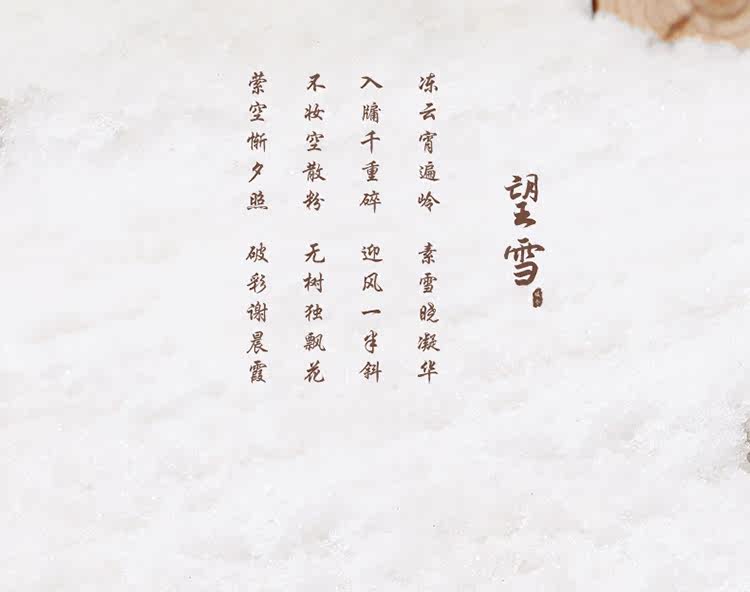 望雪
冻云宵遍岭 素雪晓凝华
入牖千重碎 迎风一半斜
不妆空散粉 无树独飘花
萦空惭夕照 破彩谢晨霞